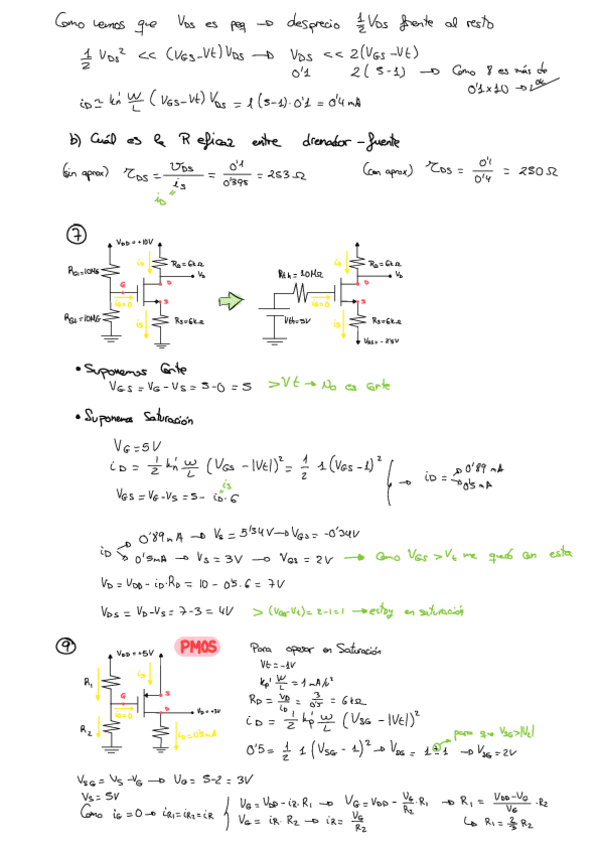 Como vemos que VDS es peq → desprecio 1/2 VDS frente al resto
1/2 VDS² << (VGS-Vt)VDS → VDS << 2(VGS-Vt)
0'1 2(5-1) → Como 8 es más de 0'1x10 → ok
iD ≃ kn' W/L (VGS-Vt) VDS = 1(5-1)·0'1 = 0'4mA
b) Cuál es la R eficaz entre drenador-fuente
(sin aprox) rDS = VDS/iS = 0'1/0'395 = 253Ω (con aprox) rDS = 0'1/0'4 = 250Ω
iD
7
VDD=+10V
RD=6kΩ
VD
RG1=10MΩ
G
D
S
iG=0
RG2=10MΩ
iS
RS=6kΩ
RD=6kΩ
Rth=10MΩ
VD
D
S
iG=0
Vth=5V
iS
RS=6kΩ
• Suponemos Corte
VGS = VG-VS = 5-0 = 5 >Vt → No es corte
• Suponemos Saturación
VG=5V
iD = 1/2 kn' W/L (VGS-|Vt|)² = 1/2 1(VGS-1)²
→ iD = 0'89mA
0'5mA
iS
VGS=VG-VS = 5-iD·6
iD 0'89mA → VS=5'34V → VGS=-0'34V
0'5mA → VS=3V → VGS=2V → Como VGS>Vt me quedo con esta
VD=VDD-iD·RD = 10-0'5·6 = 7V
VDS = VD-VS = 7-3 = 4V > (VGS-Vt)=2-1=1 → estoy en saturación
9
VDD=+5V
PMOS
R1
G
iG=0
S
D
VD=+3V
R2
iD=0'5mA
Para operar en Saturación
Vt=-1V
kp' W/L = 1mA/V²
RD = VD/iD = 3/0'5 = 6kΩ
iD = 1/2 kp' W/L (VSG-|Vt|)²
para que VSG>|Vt|
0'5 = 1/2 1(VSG-1)² → VSG = 1±1 → VSG=2V
VSG = VS-VG → VG = 5-2 = 3V
VS=5V
Como iG=0 → iR1=iR2=iR
VG=VDD-iR·R1 → VG=VDD-VG/R2·R1 → R1 = VDD-VG/VG·R2
VG=iR·R2 → iR=VG/R2 ↳ R1=2/3 R2